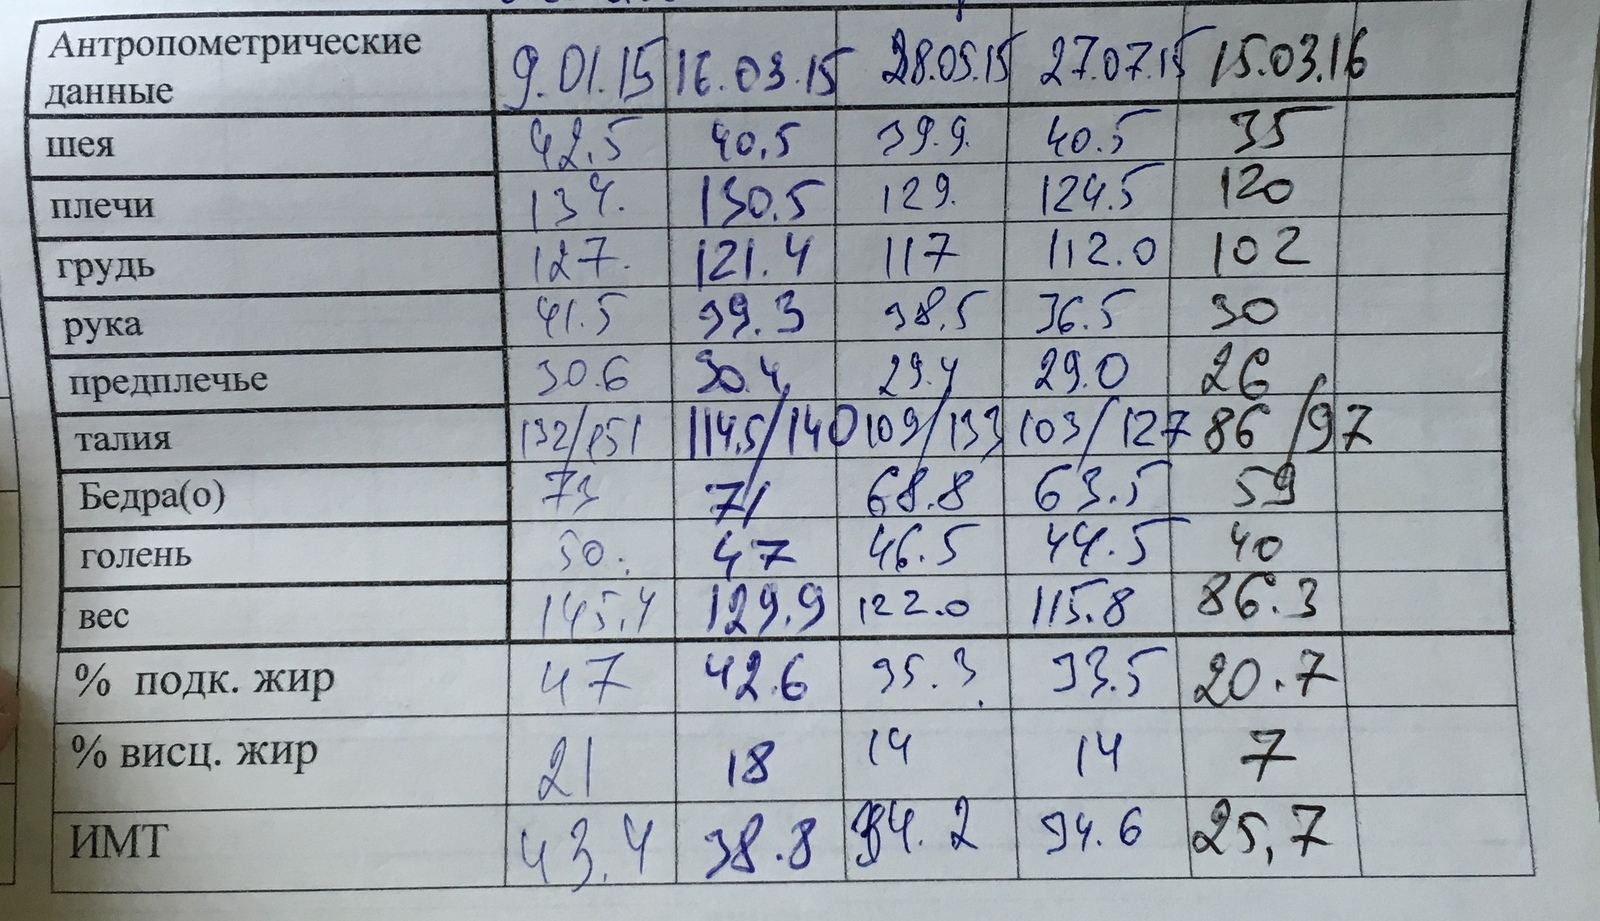 Антропометрические данные 9.01.15 16.03.15 28.05.15 27.07.15 15.03.16
шея 42.5 40.5 39.9. 40.5 35
плечи 134. 130.5 129. 124.5 120
грудь 127. 121.4 117 112.0 102
рука 41.5 39.3 38.5 36.5 30
предплечье 30.6 30.4 29.4 29.0 26
талия 132/151 114.5/140 109/133 103/127 86/97
Бедра(о) 73 71 68.8 63.5 59
голень 50. 47 46.5 44.5 40
вес 145.4 129.9 122.0 115.8 86.3
% подк. жир 47 42.6 35.3 33.5 20.7
% висц. жир 21 18 14 14 7
ИМТ 43.4 38.8 34.2 34.6 25,7